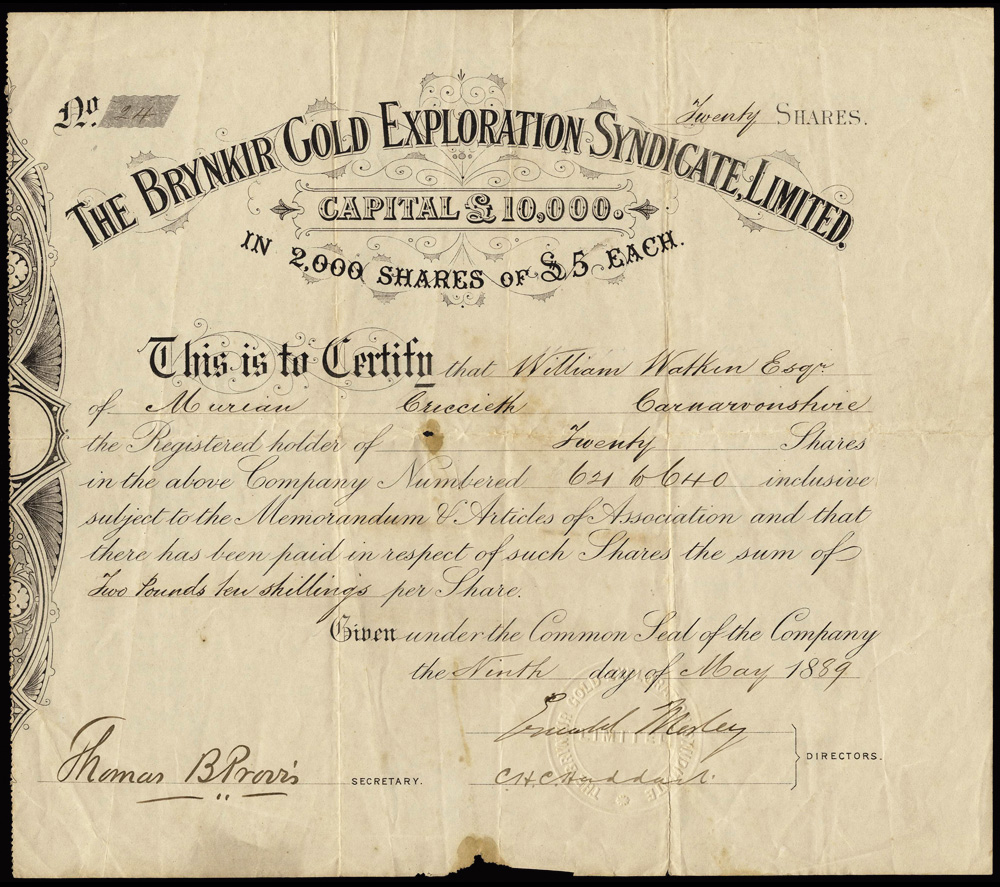 No. 24
Twenty SHARES.
THE BRYNKIR GOLD EXPLORATION SYNDICATE, LIMITED.
CAPITAL £10,000.
IN 2,000 SHARES OF £5 EACH.
This is to Certify that William Watkin Esqr
of Murian Criccieth Carnarvonshire
the Registered holder of Twenty Shares
in the above Company Numbered 621 to 640 inclusive
subject to the Memorandum & Articles of Association and that
there has been paid in respect of such Shares the sum of
Two Pounds ten shillings per Share.
Given under the Common Seal of the Company
the Ninth day of May 1889
Morley
Thomas B Provis SECRETARY.
C.H.C. Huddart. DIRECTORS.
THE BRYNKIR GOLD EXPLORATION SYNDICATE
LIMITED